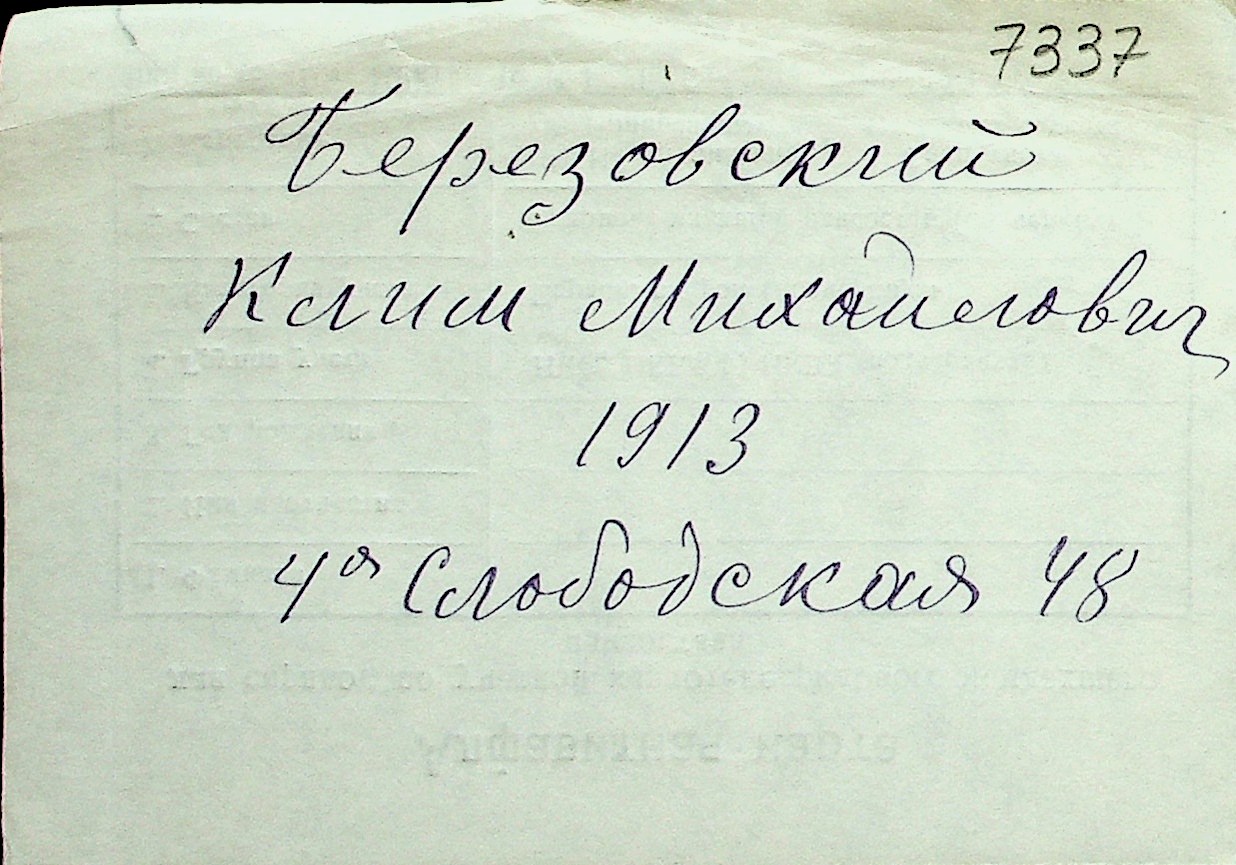 7337
Березовский
Клим Михайлович
1913
4я Слободская 48